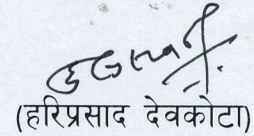 (हरिप्रसाद देवकोटा)